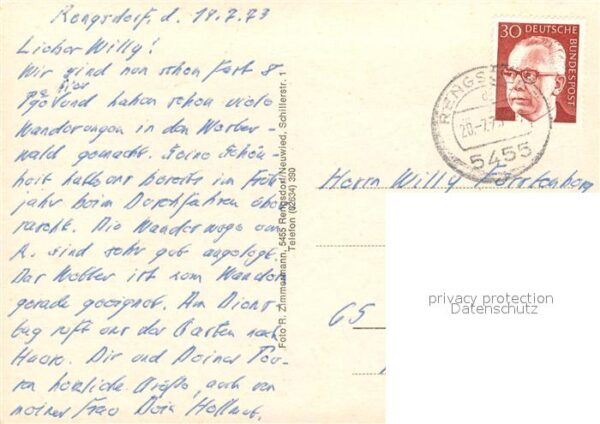 Rengsdorf, d. 19.7.73
Lieber Willy!
Wir sind nun schon fast 8
Tge hier und haben schon viele
Wanderungen in den Wester-
wald gemacht. Seine Schön-
heit hatte uns bereits im Früh-
jahr beim Durchfahren über-
rascht. Die Wanderwege um
R. sind sehr gut angelegt.
Das Wetter ist zum Wandern
gerade geeignet. Am Diens-
tag ruft uns der Garten nach
Hause. Dir und Deiner
herzliche Grüße, auch von
meiner Frau Dein Hellmut.
Foto R. Zimmermann, 5455 Rengsdorf/Neuwied, Schillerstr. 1
Telefon (02634) 390
30 DEUTSCHE
BUNDESPOST
RENGSD
20.-7.73
5455
Herrn Willy
65
privacy protection
Datenschutz